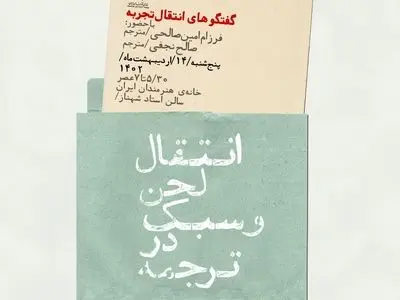 گفتگوهای انتقال تجربه
با حضور:
فرزام امین صالحی/مترجم
صالح نجفی/مترجم
پنج‌شنبه/۱۴/اردیبهشت‌ماه/
۱۴۰۲
۵/۳۰ تا ۷ عصر
خانه‌ی هنرمندان ایران
سالن استاد شهناز/
انتقال
لحن
و سبک
در
ترجمه